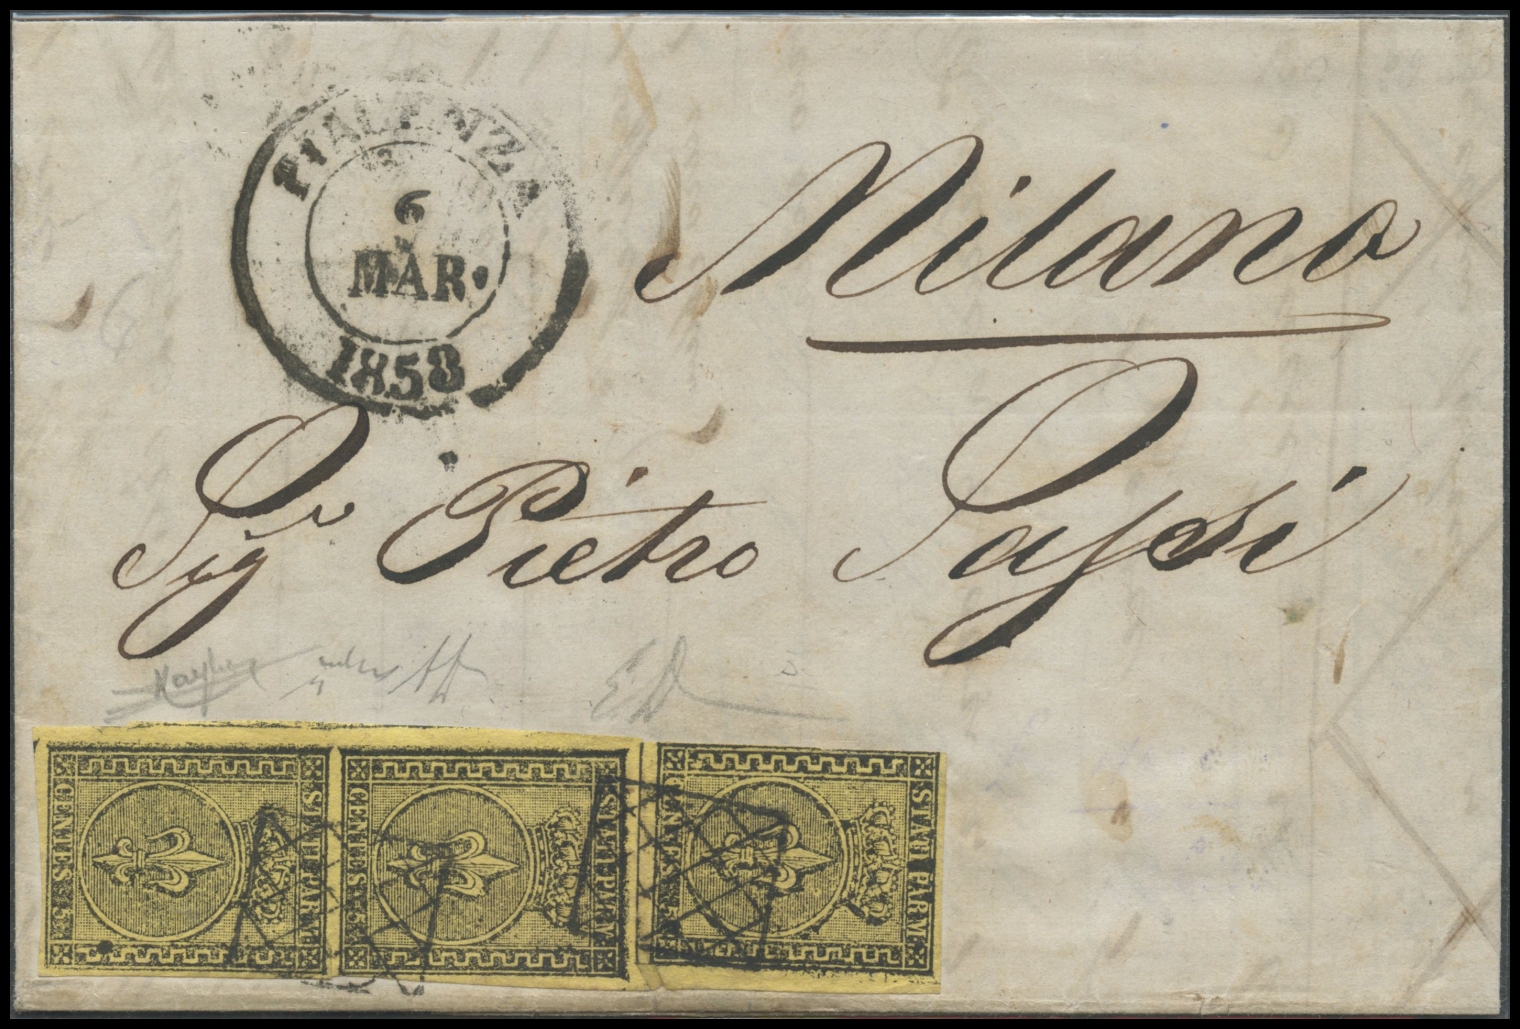 PIACENZA
6
MAR.
1858
Milano
Sigr Pietro Passi
STATI PARM.
CENTES. 5
STATI PARM.
CENTES. 5
STATI PARM.
CENTES. 5